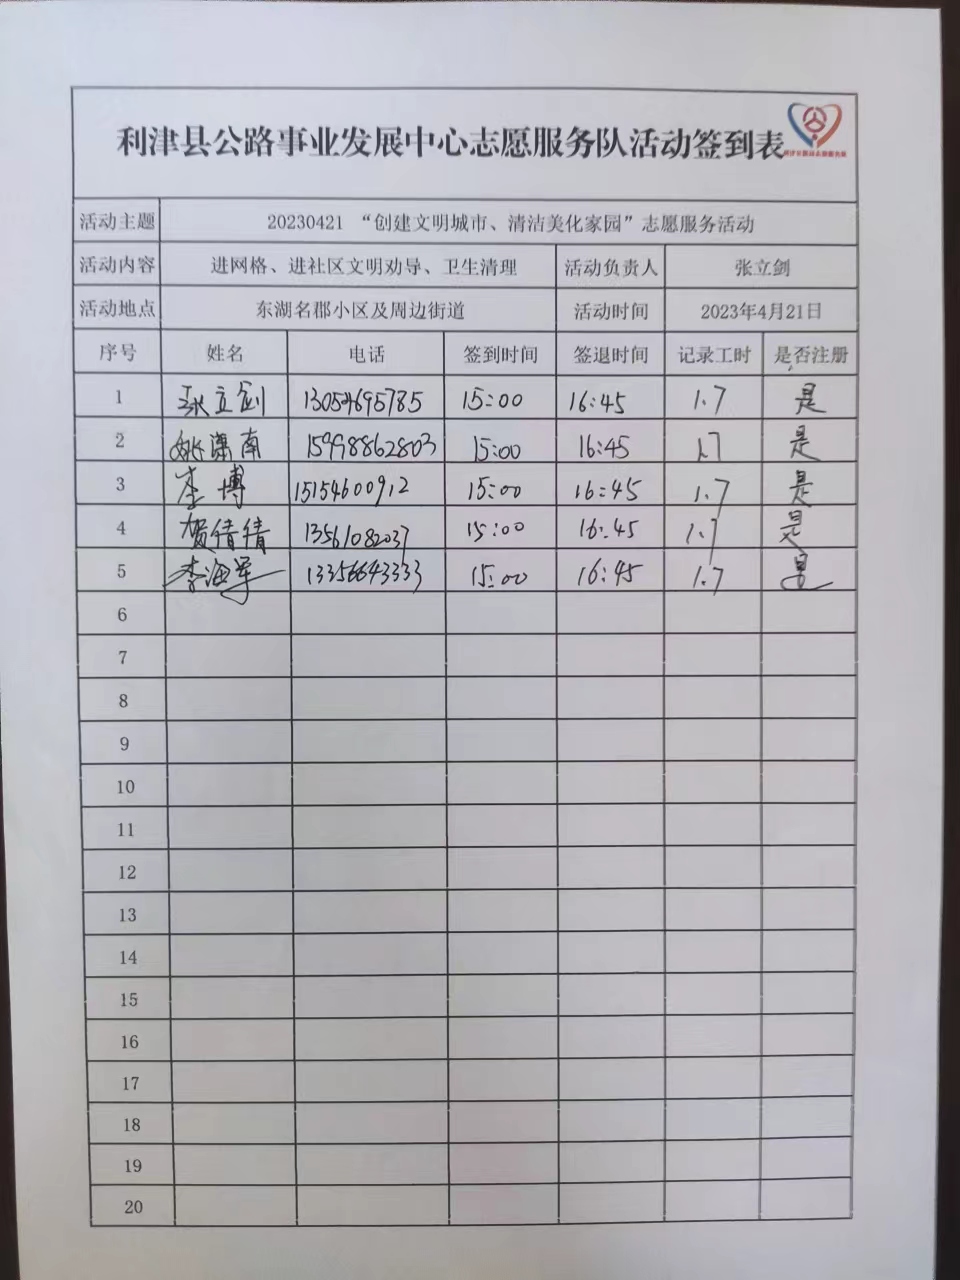 利津县公路事业发展中心志愿服务队活动签到表
活动主题 20230421 “创建文明城市、清洁美化家园”志愿服务活动
活动内容 进网格、进社区文明劝导、卫生清理 活动负责人 张立剑
活动地点 东湖名郡小区及周边街道 活动时间 2023年4月21日
序号 姓名 电话 签到时间 签退时间 记录工时 是否注册
1 张立剑 13054695785 15:00 16:45 1.7 是
2 姚潇南 15998862803 15:00 16:45 1.7 是
3 李博 15154600912 15:00 16:45 1.7 是
4 贺倩倩 13561082037 15:00 16:45 1.7 是
5 李海军 13356643333 15:00 16:45 1.7 是
6
7
8
9
10
11
12
13
14
15
16
17
18
19
20